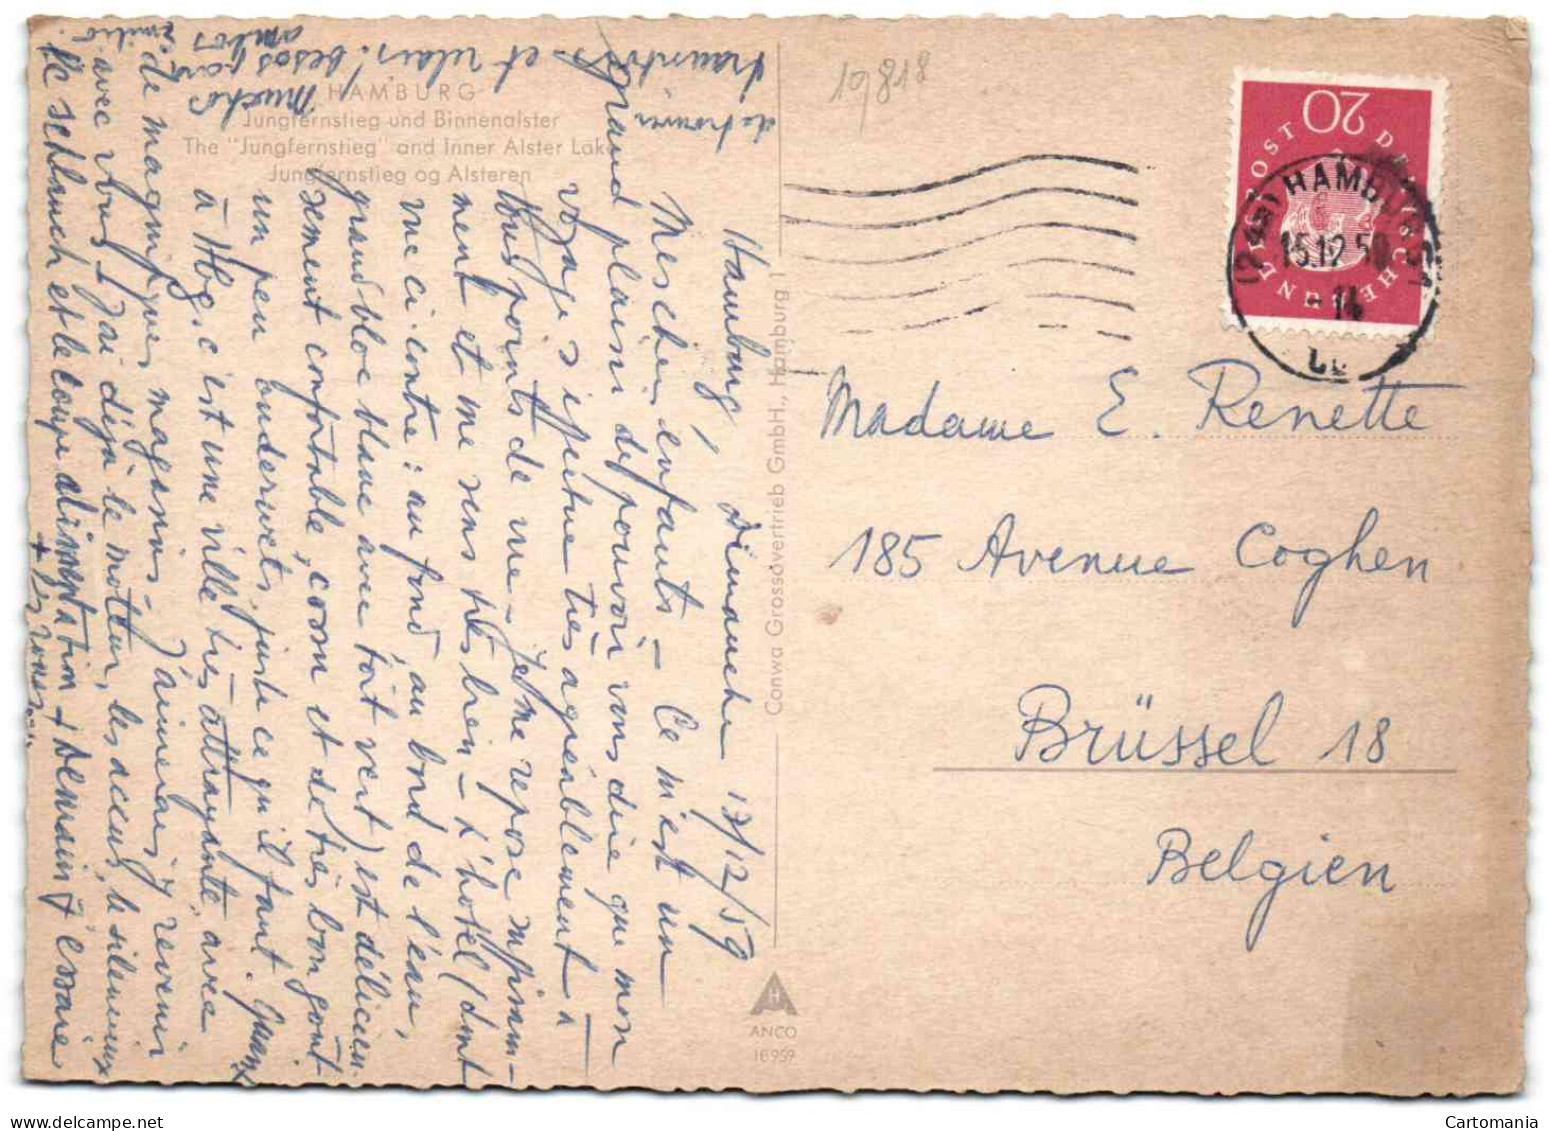 HAMBURG
Jungfernstieg und Binnenalster
The "Jungfernstieg" and Inner Alster Lake
Jungfernstieg og Alsteren
Hamburg, Dimanche 13/12/59
Mes chers enfants – Ce m'est un
grand plaisir de pouvoir vous dire que mon
voyage s'effectue très agréablement à
tous points de vue. Je me repose
ment et me sens très bien – l'hotel (dont
vue ci-contre : au fond au bord de l'eau,
grand bloc blanc avec toit vert) est délicieu
sement confortable, cosm et de très bon goût
un peu juste ce qu'il faut. Quant
à Hbg. c'est une ville très attrayante, avec
de magnifiques magasins – J'aimerais y revenir
avec vous. J'ai déjà le moteur, les accus, le silencieux
le schlauch et le coupe alimentation + Demain j'essaie
de trouver
et relais.
Muchos besos para
ambos
Emilio
Conwa Grossovertrieb GmbH., Hamburg 1
ANCO
16959
19818
20
DEUTSCHE BUNDESPOST
(24a) HAMBURG
15.12.59
- 14
Madame E. Renette
185 Avenue Coghen
Brüssel 18
Belgien
Cartomania